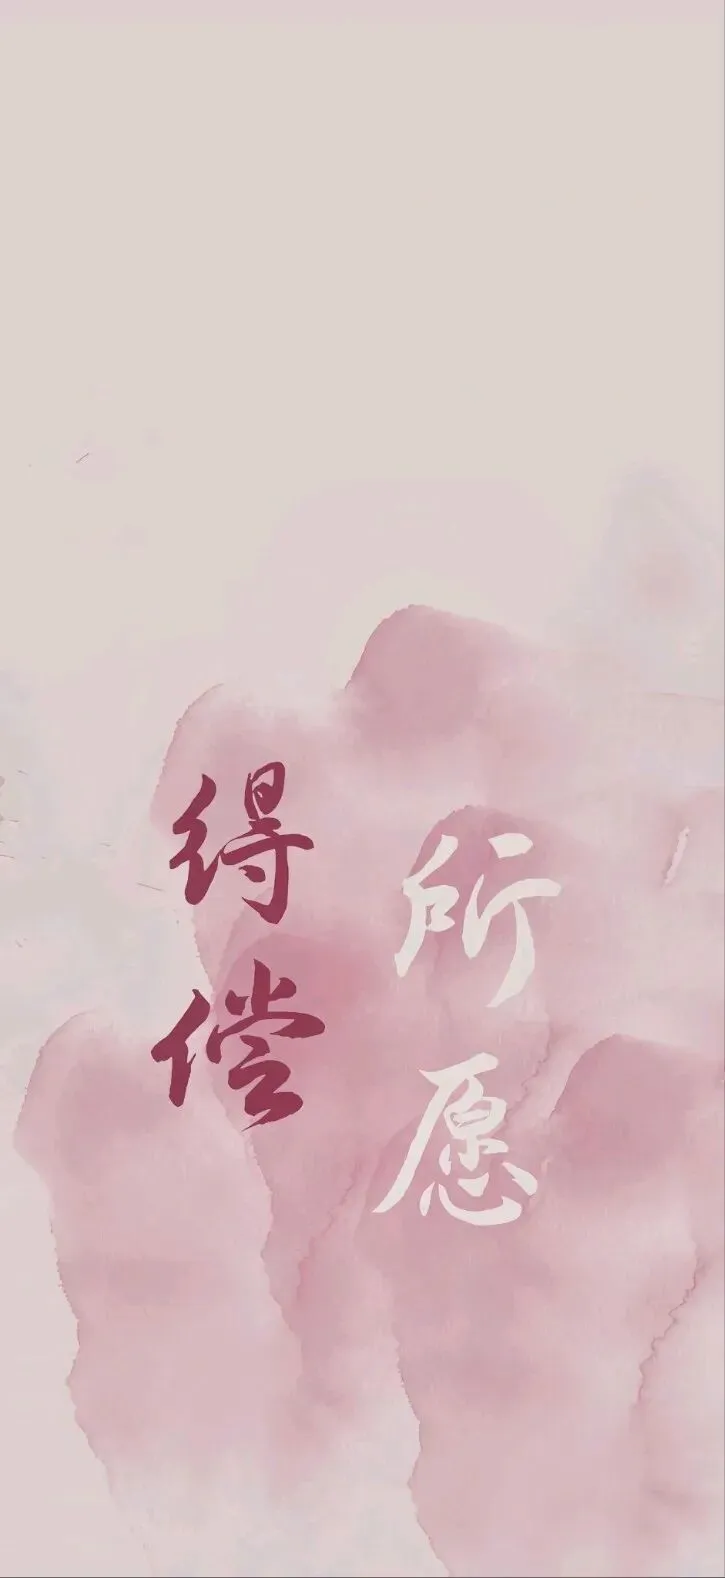 得偿
所愿